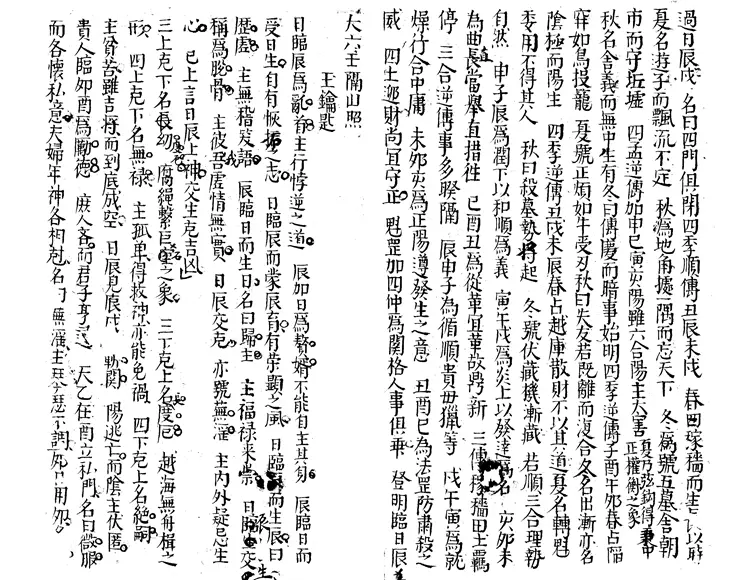 過日辰戌　名曰四門俱閉四季順傳丑辰未戌　春曰
夏名遊子而飄流不定　秋為地角據一隅而忘天下　冬為號五墓舍朝
市而守坵墟　四孟逆傳加申巳寅亥陽雖六合陽主大害夏乃弦鉤得秉中正權衡之象
秋名舍義而無中生有冬曰傳慶而暗事始明四季逆傳子酉卯春占陷
穽如鳥投籠　夏號正煩如牛受刃秋曰失友若既離而復合冬名出漸亦名
陰極而陽生　四季逆傳丑戌未辰春占越庫散財不以其道夏名轉魁
委用不得其人　秋曰殺墓勢將起　冬號伏藏機漸藏　若順三合理勢
自然　申子辰為潤下以和順為義　寅午戌為炎上以發達為名　亥卯未
為曲直當舉直措枉　巳酉丑為從革宜革故鼎新　三傳稼穡田土羈
停　三合逆傳事多睽隔　辰申子為循順貴毋獵等　戌午寅為就
燥行合中庸　未卯亥為正陽遵發生之意　丑酉巳為法罡防肅殺之
威　四土逆財尚宜守正　魁罡加四仲為関格人事俱乖　登明臨日辰
大六壬開山照
玉鑰匙
日臨辰為亂首主行悖逆之道　辰加日為贅婿不能自主其身　辰臨日而
受日生自有恢擴之志　日臨辰而蒙辰育有荣顯之風　日臨辰而生辰曰
歷虛　主無稽笑語　辰臨日而生日名曰歸主　主福禄来崇　日臨辰交
稱為脫骨　主彼吾虛情無實　日辰交克　亦號蕪淫　主內外疑忌生
心　已上言日辰上神交生克吉凶
三上克下名長幼　腐繩繫巨壑之象　三下克上名度厄　越海無舟楫之
形　四上克下名無禄　主孤單得救神亦能免禍　四下克上名絶嗣
主貧苦雖吉將而到底成空　日辰見辰戌　勃関　陽逃亡而陰主伏匿
貴人臨卯酉為勵德　庶人吝而君子亨　天乙在酉立私門名曰微服
而各懷私意夫婦年神各相尅名曰無淫主琴瑟不調